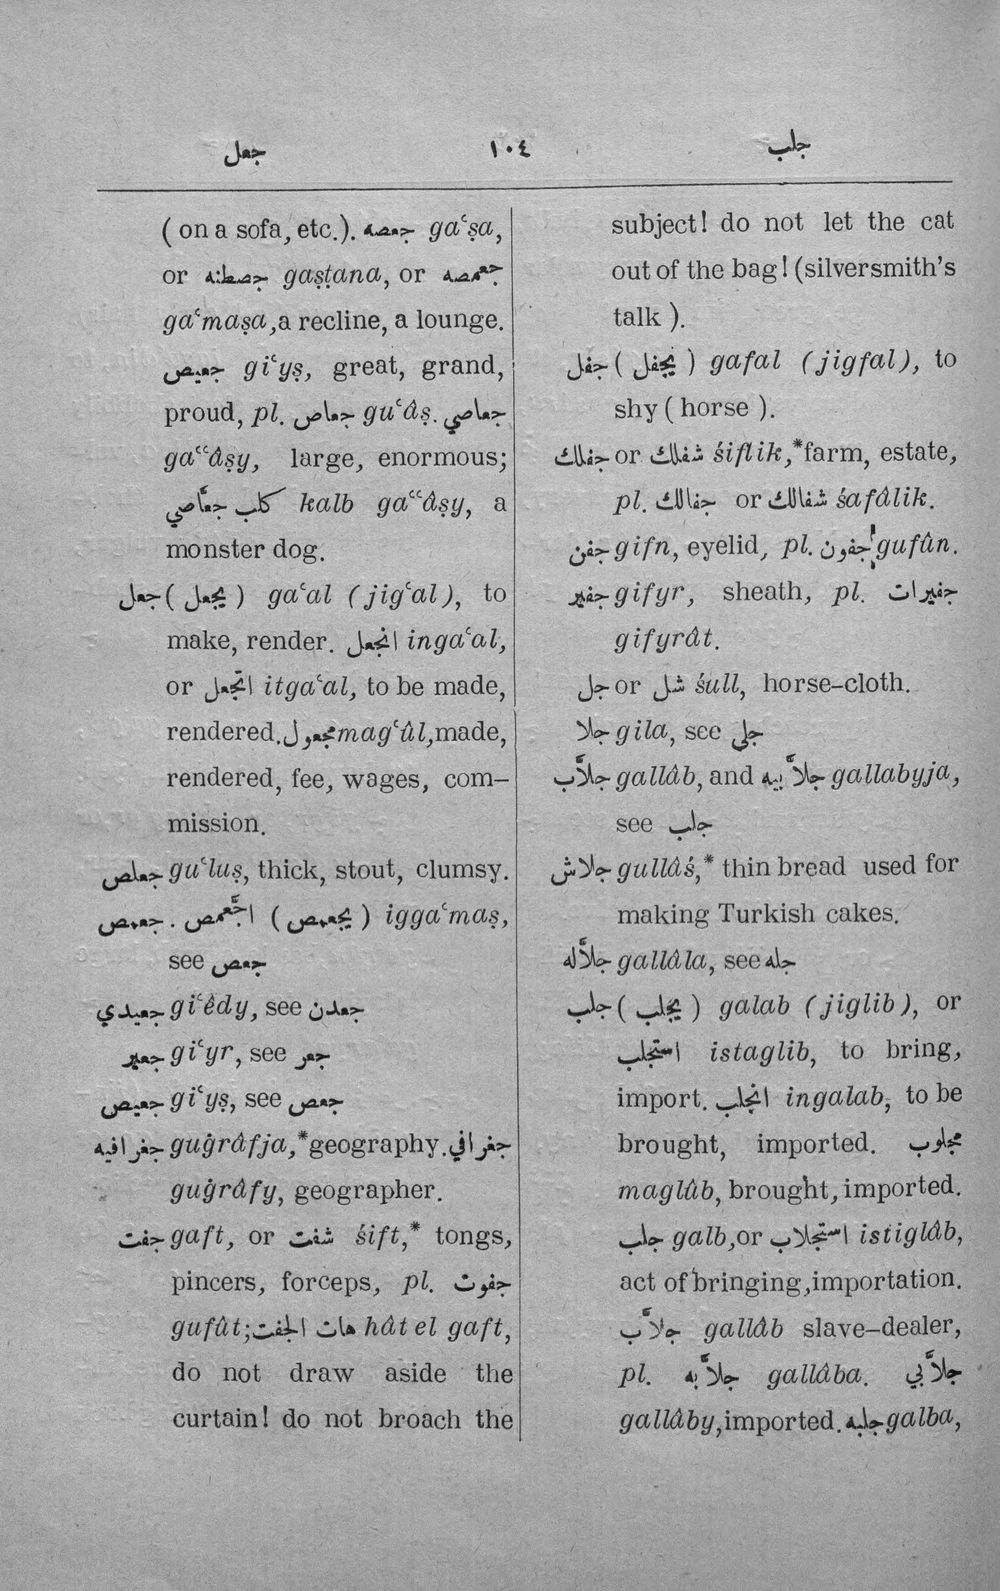 جعل ١٠٤ جلب
(on a sofa, etc.). جعصه gaʿṣa,
or جصطنه gaṣṭana, or جعمصه
gaʿmaṣa, a recline, a lounge.
جعيص giʿyṣ, great, grand,
proud, pl. جعاص guʿâṣ. جعاصي
gaʿʿâṣy, large, enormous;
كلب جعّاصي kalb gaʿʿâṣy, a
monster dog.
جعل (يجعل) gaʿal (jigʿal), to
make, render. انجعل ingaʿal,
or اتجعل itgaʿal, to be made,
rendered. مجعول magʿûl, made,
rendered, fee, wages, com-
mission.
جعلص guʿluṣ, thick, stout, clumsy.
جعمص . اجّعمص (يجعمص) iggaʿmaṣ,
see جعص
جعيدي giʿêdy, see جعدن
جعير giʿyr, see جعر
جعيص giʿyṣ, see جعص
جغرافيه guġrâfja,* geography. جغرافي
guġrâfy, geographer.
جفت gaft, or شفت śift,* tongs,
pincers, forceps, pl. جفوت
gufût; هات الجفت hât el gaft,
do not draw aside the
curtain! do not broach the
subject! do not let the cat
out of the bag! (silversmith's
talk ).
جفل (يجفل) gafal (jigfal), to
shy (horse ).
جفلك or شفلك śiflik,* farm, estate,
pl. جفالك or شفالك śafâlik.
جفن gifn, eyelid, pl. جفون gufûn.
جفير gifyr, sheath, pl. جفيرات
gifyrât.
جل or شل śull, horse-cloth.
جلا gila, see جلي
جلاّب gallâb, and جلاّبيه gallabyja,
see جلب
جلاش gullâś,* thin bread used for
making Turkish cakes.
جلاّله gallâla, see جله
جلب (يجلب) galab (jiglib), or
استجلب istaglib, to bring,
import. انجلب ingalab, to be
brought, imported. مجلوب
maglûb, brought, imported.
جلب galb, or استجلاب istiglâb,
act of bringing, importation.
جلاّب gallâb slave-dealer,
pl. جلاّبه gallâba. جلاّبي
gallâby, imported. جلبه galba,